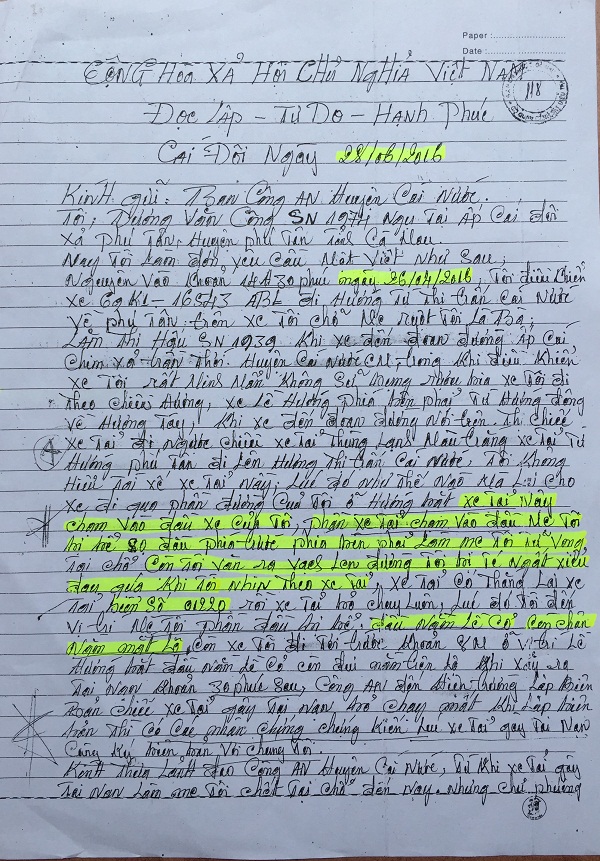 Paper :
Date :
118
CỘNG Hòa XẢ Hội CHủ NgHiả Việt NAM
Đọc Lập - Tư Do - HạnH PHúc
Cái Đôi Ngày 28/06/2016
KínH gửi: Ban Công AN Huyện Cái Nước.
Tôi; Dương Văn Công SN 1974 Ngụ Tại Ấp Cái đôi
Xả PHú Tân, Huyện PHú Tân Tỉnh Cà Mau.
Nay Tôi Làm đơn yêu Cầu Một Việt NHư Sau;
Nguyên Vào khoản 14h30 phúc ngày 26/04/2016, Tôi điều khiển
xe 69K1-16543 đi Hướng Từ Thị Trấn Cái Nước
Về PHú Tân. Trên xe Tôi chở Mẹ ruột Tôi Là Bà;
Lâm Thị Hậu SN 1939. Khi xe đến đoạn đường Ấp Cái
Chim xả Huyện Cái Nước CM, Trong khi điều khiển
xe Tôi rất Không Sử dụng rượu bia xe Tôi đi
Theo chiều Hướng, xe Lề Hướng PHía bên phải Từ Hướng đông
Về Hướng Tây, Khi xe đến đoạn đường Nói Trên. Thì chiếc
xe Tải đi Ngược chiều xe Tải Thùng Lạnh Màu Trắng xe Tải Từ
Hướng PHú Tân đi Lên Hướng Thị Trấn Cái Nước, Tôi Không
Hiểu Tại xế xe Tải Này, Lúc đó NHư THế Ngủ mà Lại Cho
xe đi qua phần đường Của Tôi ở Hướng mặt xe Tải Này
chạm Vào đầu xe Của Tôi, phần xe Tải chạm Vào đầu Mẹ Tôi
bể Sọ đầu phía Trước phía bên phải Làm mẹ Tôi Tử Vong
Tại chổ Còn Tôi Văn ra Lên đường Tôi Ngất xiểu
đau quá Khi Tôi NHìn Theo xe Tải, xe Tải Có Thắng Lại xe
Tải biển Số 01220 rồi xe Tải bỏ chạy Luôn, Lúc đó Tôi đến
Vị Trí Mẹ Tôi phần đầu bể, đầu Nằm Lề Cỏ Còn chân
Nằm mặt Lộ, Còn xe Tôi đi Tới Trước khoản 8M ở Vị Trí Lề
Hướng mặt đầu Nằm Lề Cỏ Còn đuôi nằm Trên Lộ Khi xảy ra
Tai Nạn khoản 30 phúc Sau, Công AN đến Hiện Trường Lập biên
bản chiếc xe Tải gây Tai Nạn bỏ chạy mất Khi Lập biên
bản Thì có Các Nhân chứng chứng kiến Lúc xe Tải gây Tai Nạn
Cùng Ký biên bản Với chúng Tôi.
KínH Thưa LảnH đạo Công AN Huyện Cái Nước, Từ Khi xe Tải gây
Tai Nạn Làm mẹ Tôi chết Tại chổ đến Nay. Nhưng chư phương